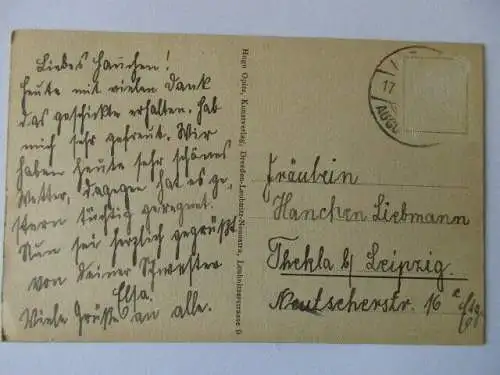 Liebes Hannchen!
Heute mit vielen Dank
das geschickte erhalten. Hab
mich sehr gefreut. Wir
haben heute sehr schönes
Wetter, dagegen hat es ge-
stern tüchtig geregnet.
Nun sei herzlich gegrüßt
von Deiner Schwester
Elsa.
Viele Grüße an alle.
Hugo Opitz, Kunstverlag, Dresden-Leubnitz-Neuostra
17
AUGU
Fräulein
Hanchen Liebmann
Thekla b/ Leipzig.
16